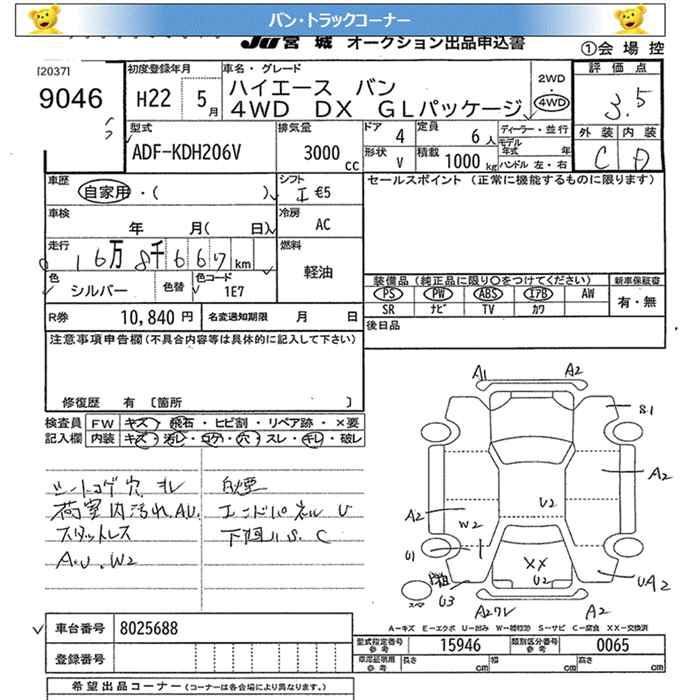 バン・トラックコーナー
JU宮城 オークション出品申込書
①会場控
[2037]
9046
初度登録年月
H22 5月
車名・グレード
ハイエース バン
4WD DX GLパッケージ
2WD
4WD
評価点
3.5
外装 内装
C D
型式
ADF-KDH206V
排気量
3000cc
ドア 4
形状 V
定員 6人
積載 1000kg
ディーラー・並行
モデル年式 年
ハンドル 左・右
車歴
自家用・( )
シフト
I €5
セールスポイント (正常に機能するものに限ります)
車検
年 月( 日)
冷房
AC
走行
16万8千667km
燃料
軽油
色
シルバー
色替
色コード
1E7
装備品(純正品に限り○をつけてください)
PS PW ABS エアB AW
SR ナビ TV カワ
新車保証書
有・無
R券 10,840円
名変通知期限 月 日
後日品
注意事項申告欄(不具合内容等は具体的に記入して下さい)
修復歴 有 [箇所 ]
検査員記入欄
FW キズ・飛石・ヒビ割・リペア跡・×要
内装 キズ・汚レ・コゲ・穴・スレ・キレ・破レ
シートコゲ穴 キレ
荷室内汚れ.AU.
スタットレス
A.U.W2
白煙
エンドパネル U
下廻りS.C
A1 A2
S.1
A2
A2
U2
W2
U1
XX
U2
U3
UA2
スペア
A2ワレ
A2
A=キズ E=エクボ U=凹み W=補修跡 S=サビ C=腐食 XX=交換済
車台番号 8025688
登録番号
型式指定番号 参考 15946
類別区分番号 参考 0065
車庫証明用 参考 長さ cm 幅 cm 高さ cm
希望出品コーナー(コーナーは各会場により異なります。)